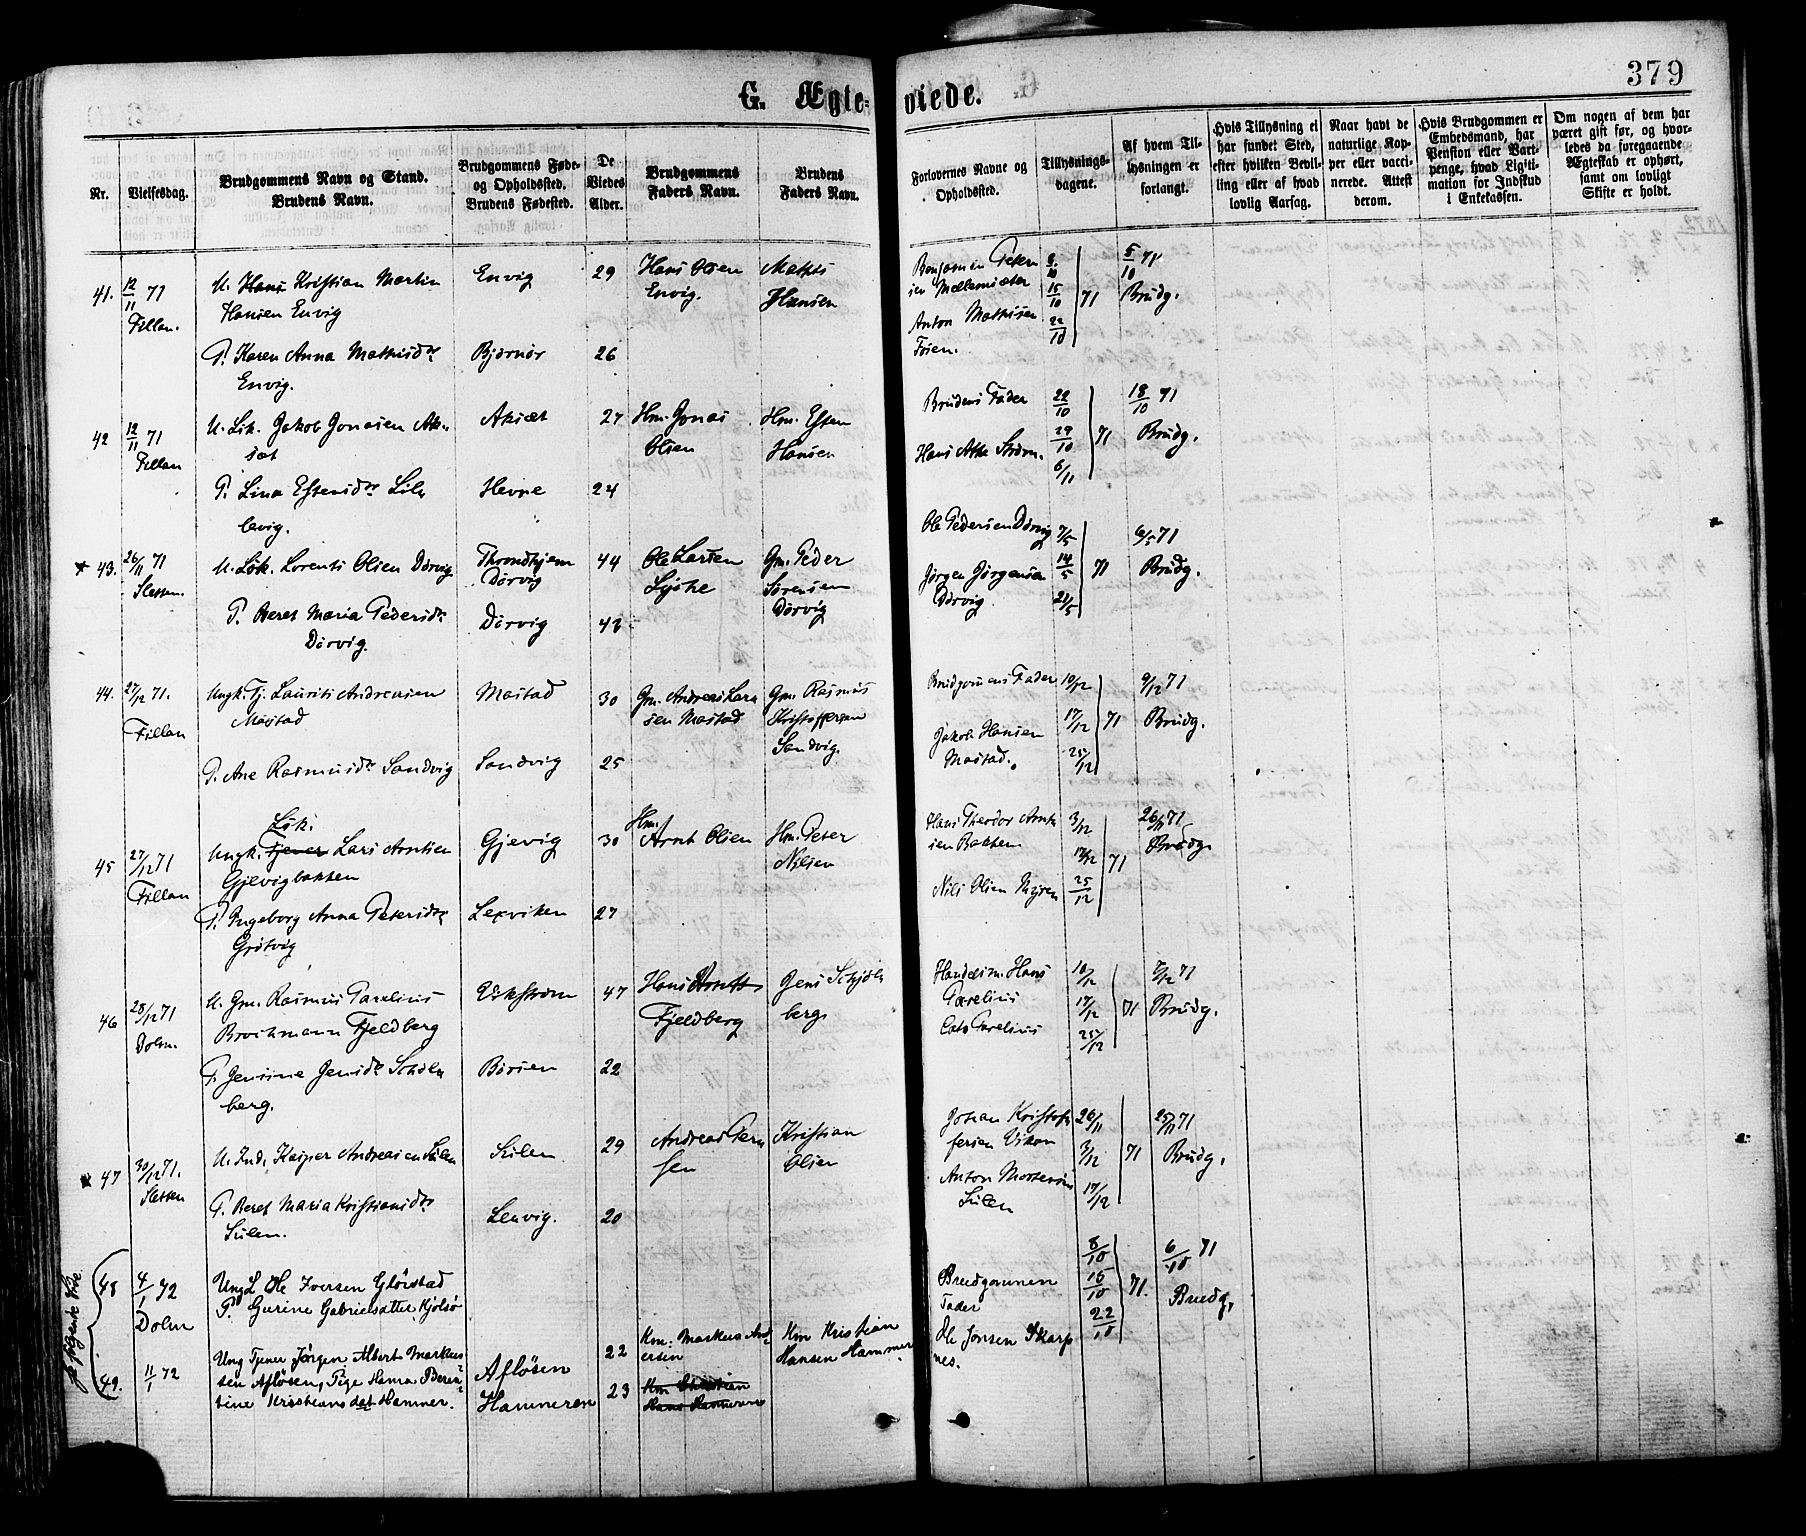 379
G. Ægte- viede.
Nr.
Vielsesdag.
Brudgommens Navn og Stand.
Brudens Navn.
Brudgommens Føde-
og Opholdssted.
Brudens Fødested.
De
Viedes
Alder.
Brudgommens
Faders Navn.
Brudens
Faders Navn.
Forlovernes Navne og
Opholdssted.
Tillysnings-
dagene.
Af hvem Til-
lysningen er
forlangt.
Hvis Tillysning ei
har fundet Sted,
efter hvilken Bevil-
ling eller af hvad
lovlig Aarsag.
Naar havt de
naturlige Kop-
per eller vacci-
nerede. Attest
derom.
Hvis Brudgommen er
Embedsmand, har
Pension eller Vart-
penge, hvad Ligiti-
mation for Indskud
i Enkekassen.
Om nogen af dem har
været gift før, og hvor-
ledes da foregaaende
Ægteskab er ophørt,
samt om lovligt
Skifte er holdt.
41. 12/11 71 Fillan.
U. Hans Kristian Martin
Hansen Envig
Envig 29
Hans Olsen
Envig.
Mathis
Hansen
P. Karen Anna Mathisdr
Envig.
Bjørnør 26
Benjamin Peter
sen Mellemsæter
Anton Mathisen
Føien.
8/10 15/10 22/10 71
5/10 71
Brudg.
42 12/11 71 Fillan
U. Jakob Jonasen Ak-
sæt
Aksæt 27
Hm. Jonas
Olsen
Hm. Esten
Hansen
P. Lina Estensdr Lil
levig.
Hevne 24
Brudens Fader
Hans Strøm.
22/10 29/10 6/11 71
18/10 71
Brudg.
43. 26/11 71 Sletten.
U. Løk. Lorents Olsen Dørvig
Throndhjem
Dørvig
44
Ole Larsen
Gm. Peder
Sørensen
Dørvig
P. Beret Maria Pedersdr
Dørvig.
Dørvig
Ole Pedersen Dørvig
Jørgen Jørgensen
Dørvig
7/5 14/5 21/5 71
6/5 71
Brudg.
44. 27/12 71. Fillan
Ungk. Tj. Laurits Andreasen
Mastad
Mastad 30
Gm. Andreas Lar
sen Mastad
Gm. Rasmus
Kristoffersen
Sandvig.
P. Ane Rasmusdr Sandvig
Sandvig 25
Brudgomens Fader
Jakob Hansen
Mastad.
10/12 17/12 25/12 71
9/12 71
Brudg.
45 27/12 71 Fillan
Ungk. Tjener Lars Arntsen
Gjevigbakken
Gjevig 30
Hm.
Arnt Olsen
Hm. Peter
Nilsen
P. Ingeborg Anna Petersdr
Grøtvig
Lexviken 27
Hans Theodor Arnt
sen Bakken
Nils Olsen Myren
3/12 17/12 25/12 71
26/11 71
Brudg.
46 28/12 71 Dolm.
U. Gm. Rasmus Parelius
Brochmann Fjeldberg
Vikstrøm 47
Hans Arnt
Fjeldberg
Jens Schjøl
berg
P. Jensine Jensdr Schjøl
berg.
Børsen 22
Handelsm. Hans
Parelius
Parelius
10/12 17/12 25/12 71
7/12 71
Brudg.
47 30/12 71. Sletten
U. Ind. Kasper Andreasen Sulen
Sulen 29
Andreas
sen
Kristian
Olsen
P. Beret Maria Kristiansdr
Sulen.
Lenvig. 20
Johan Kristof
fersen Vikan
Anton Mortensen
Sulen
26/11 3/12 17/12 71
25/11 71
Brudg.
48 4/1 72 Dolm
Ung L Ole Iversen Glørstad
P. Gurine Gabrielsdatter Kjølsø
Brudgommen
Fader
Ole Jonsen Skarp
nes.
8/10 15/10 22/10 71.
6/10 71
Brudg.
49. 11/1 72
Ung Tjener Jørgen Albert Markus-
sen Afløsen, Pige Hanna Beren-
tine Kristiansdat Hammer.
Afløsen 22
Hammeren 23
Km: Markus And-
ersen
Km Kristian
Hansen Hammer
Km Christian
Hans Hammeren